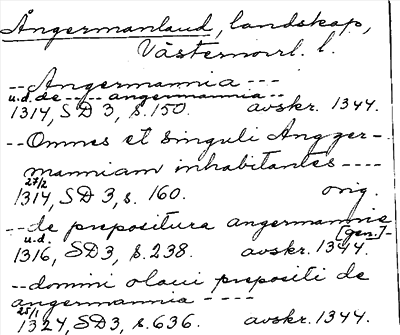 Ångermanland, landskap,
Västernorrl. l.
--Angermannia---
u.d. de---- angermannia--
1314, SD 3, s. 150. avskr. 1344.
--Omnes et singuli Angger-
manniam inhabitantes----
27/2
1314, SD 3, s. 160. orig.
--de prepositura angermannie
u.d. [gen.]-
1316, SD3, s. 238. avskr. 1344.
--domini olaui prepositi de
angermannia----
25/1
1324, SD3, s. 636. avskr. 1344.